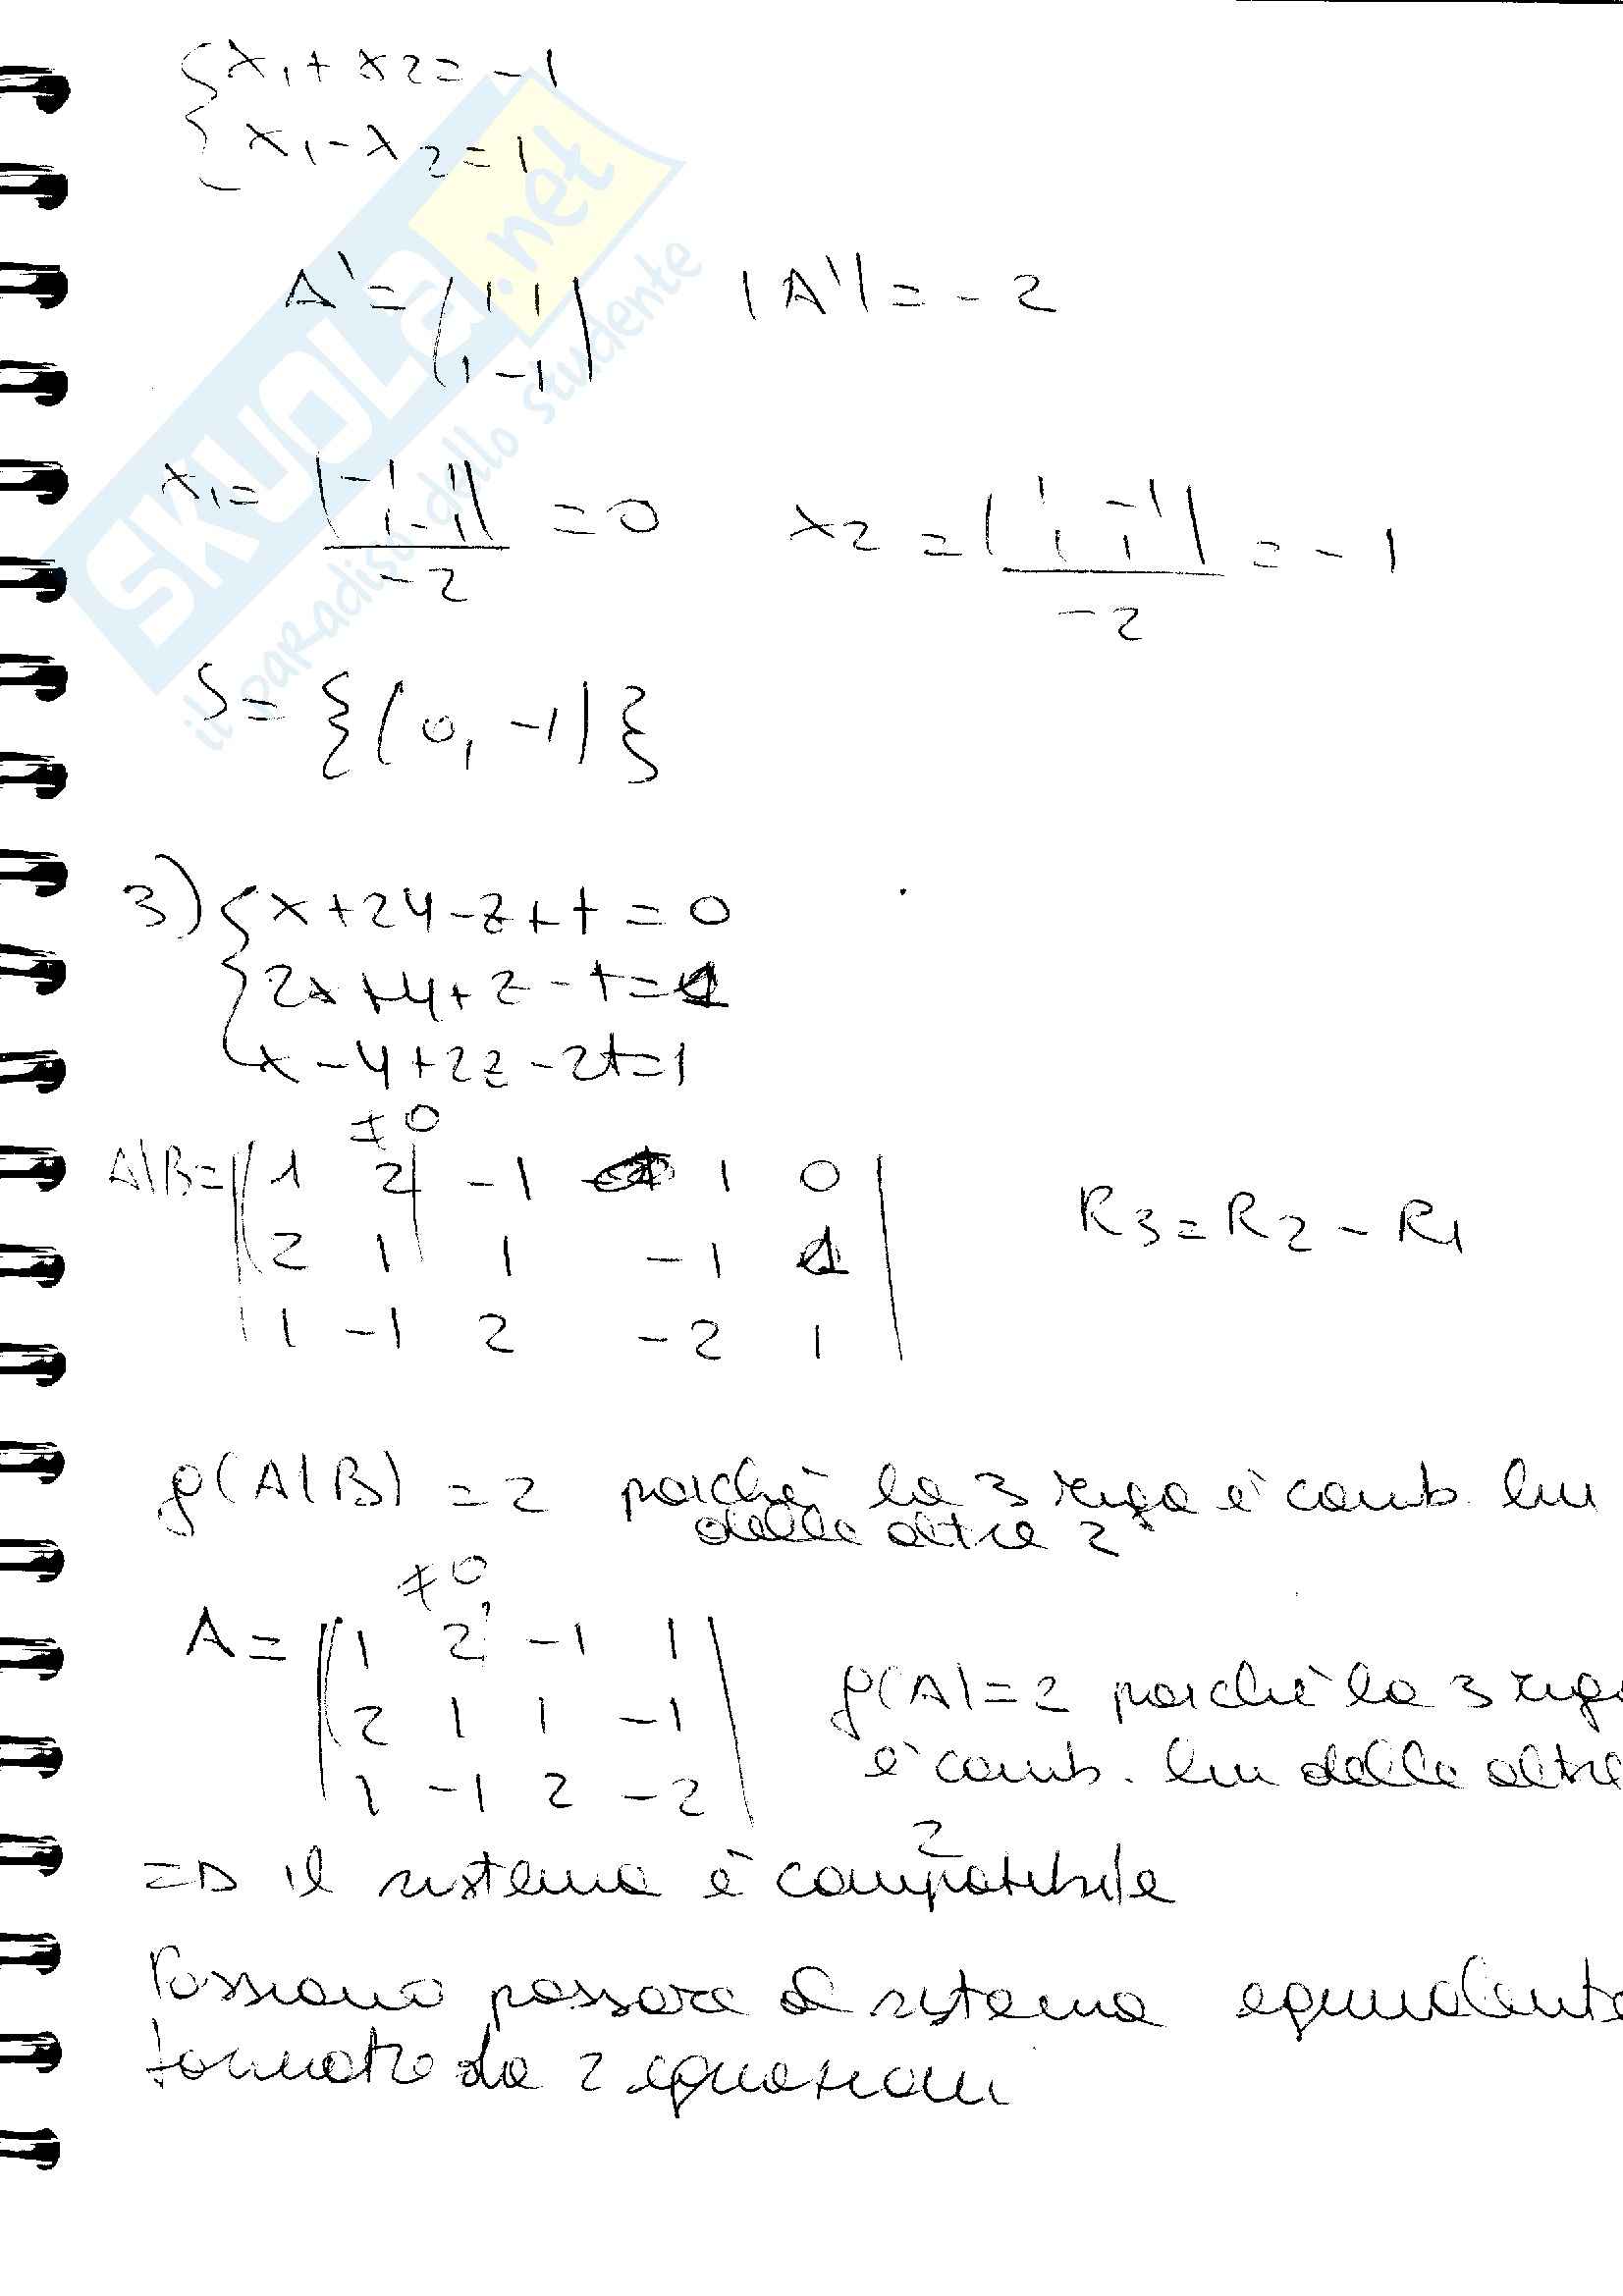 {x1 + x2 = -1
{x1 - x2 = 1
A' = (1 1
1 -1) |A'| = -2
x1 = |-1 1
1 -1| / -2 = 0 x2 = |1 -1
1 1| / -2 = -1
S = {(0, -1)}
3) {x + 2y - z + t = 0
2x + y + z - t = 1
x - y + 2z - 2t = 1
≠ 0
A|B = 1 2 -1 1 0
2 1 1 -1 1
1 -1 2 -2 1
R3 = R2 - R1
ρ(A|B) = 2 poiché la 3 riga è comb. lin
delle altre 2
≠ 0
A = 1 2 -1 1
2 1 1 -1
1 -1 2 -2
ρ(A) = 2 poiché la 3 riga
è comb. lin delle altre
2
=> il sistema è compatibile
Possiamo passare al sistema equivalente
formato da 2 equazioni
SKUOLA.net
il paradiso dello studente